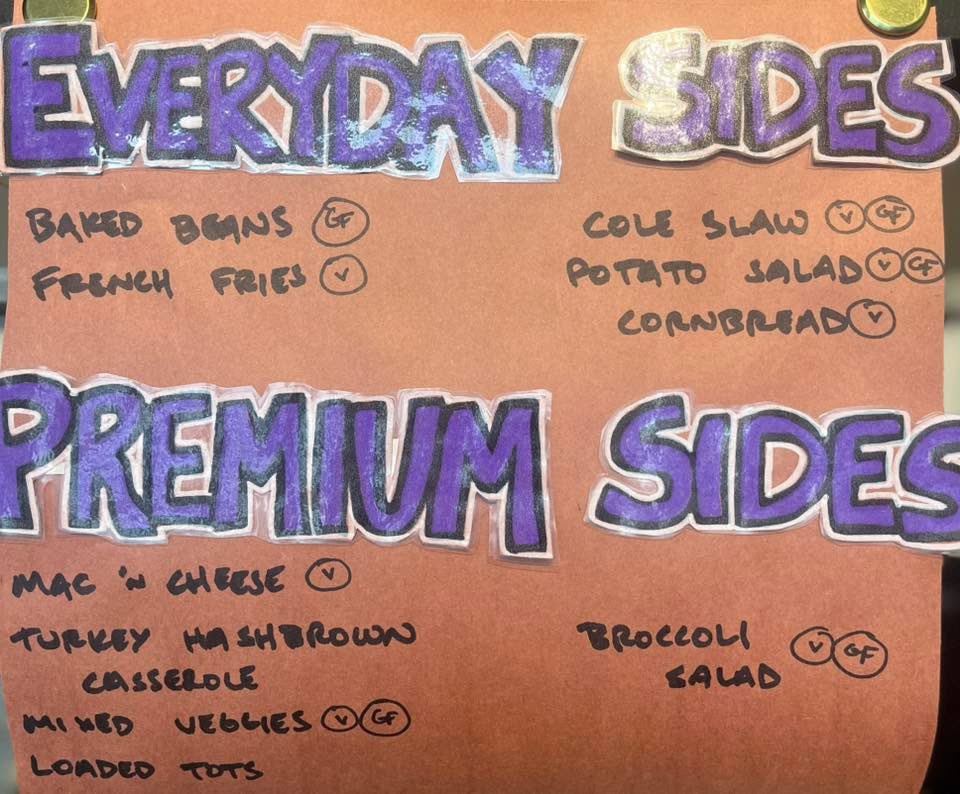 EVERYDAY SIDES
BAKED BEANS GF
FRENCH FRIES V
COLE SLAW V GF
POTATO SALAD V GF
CORNBREAD V
PREMIUM SIDES
MAC 'N CHEESE V
TURKEY HASHBROWN
CASSEROLE
MIXED VEGGIES V GF
LOADED TOTS
BROCCOLI V GF
SALAD